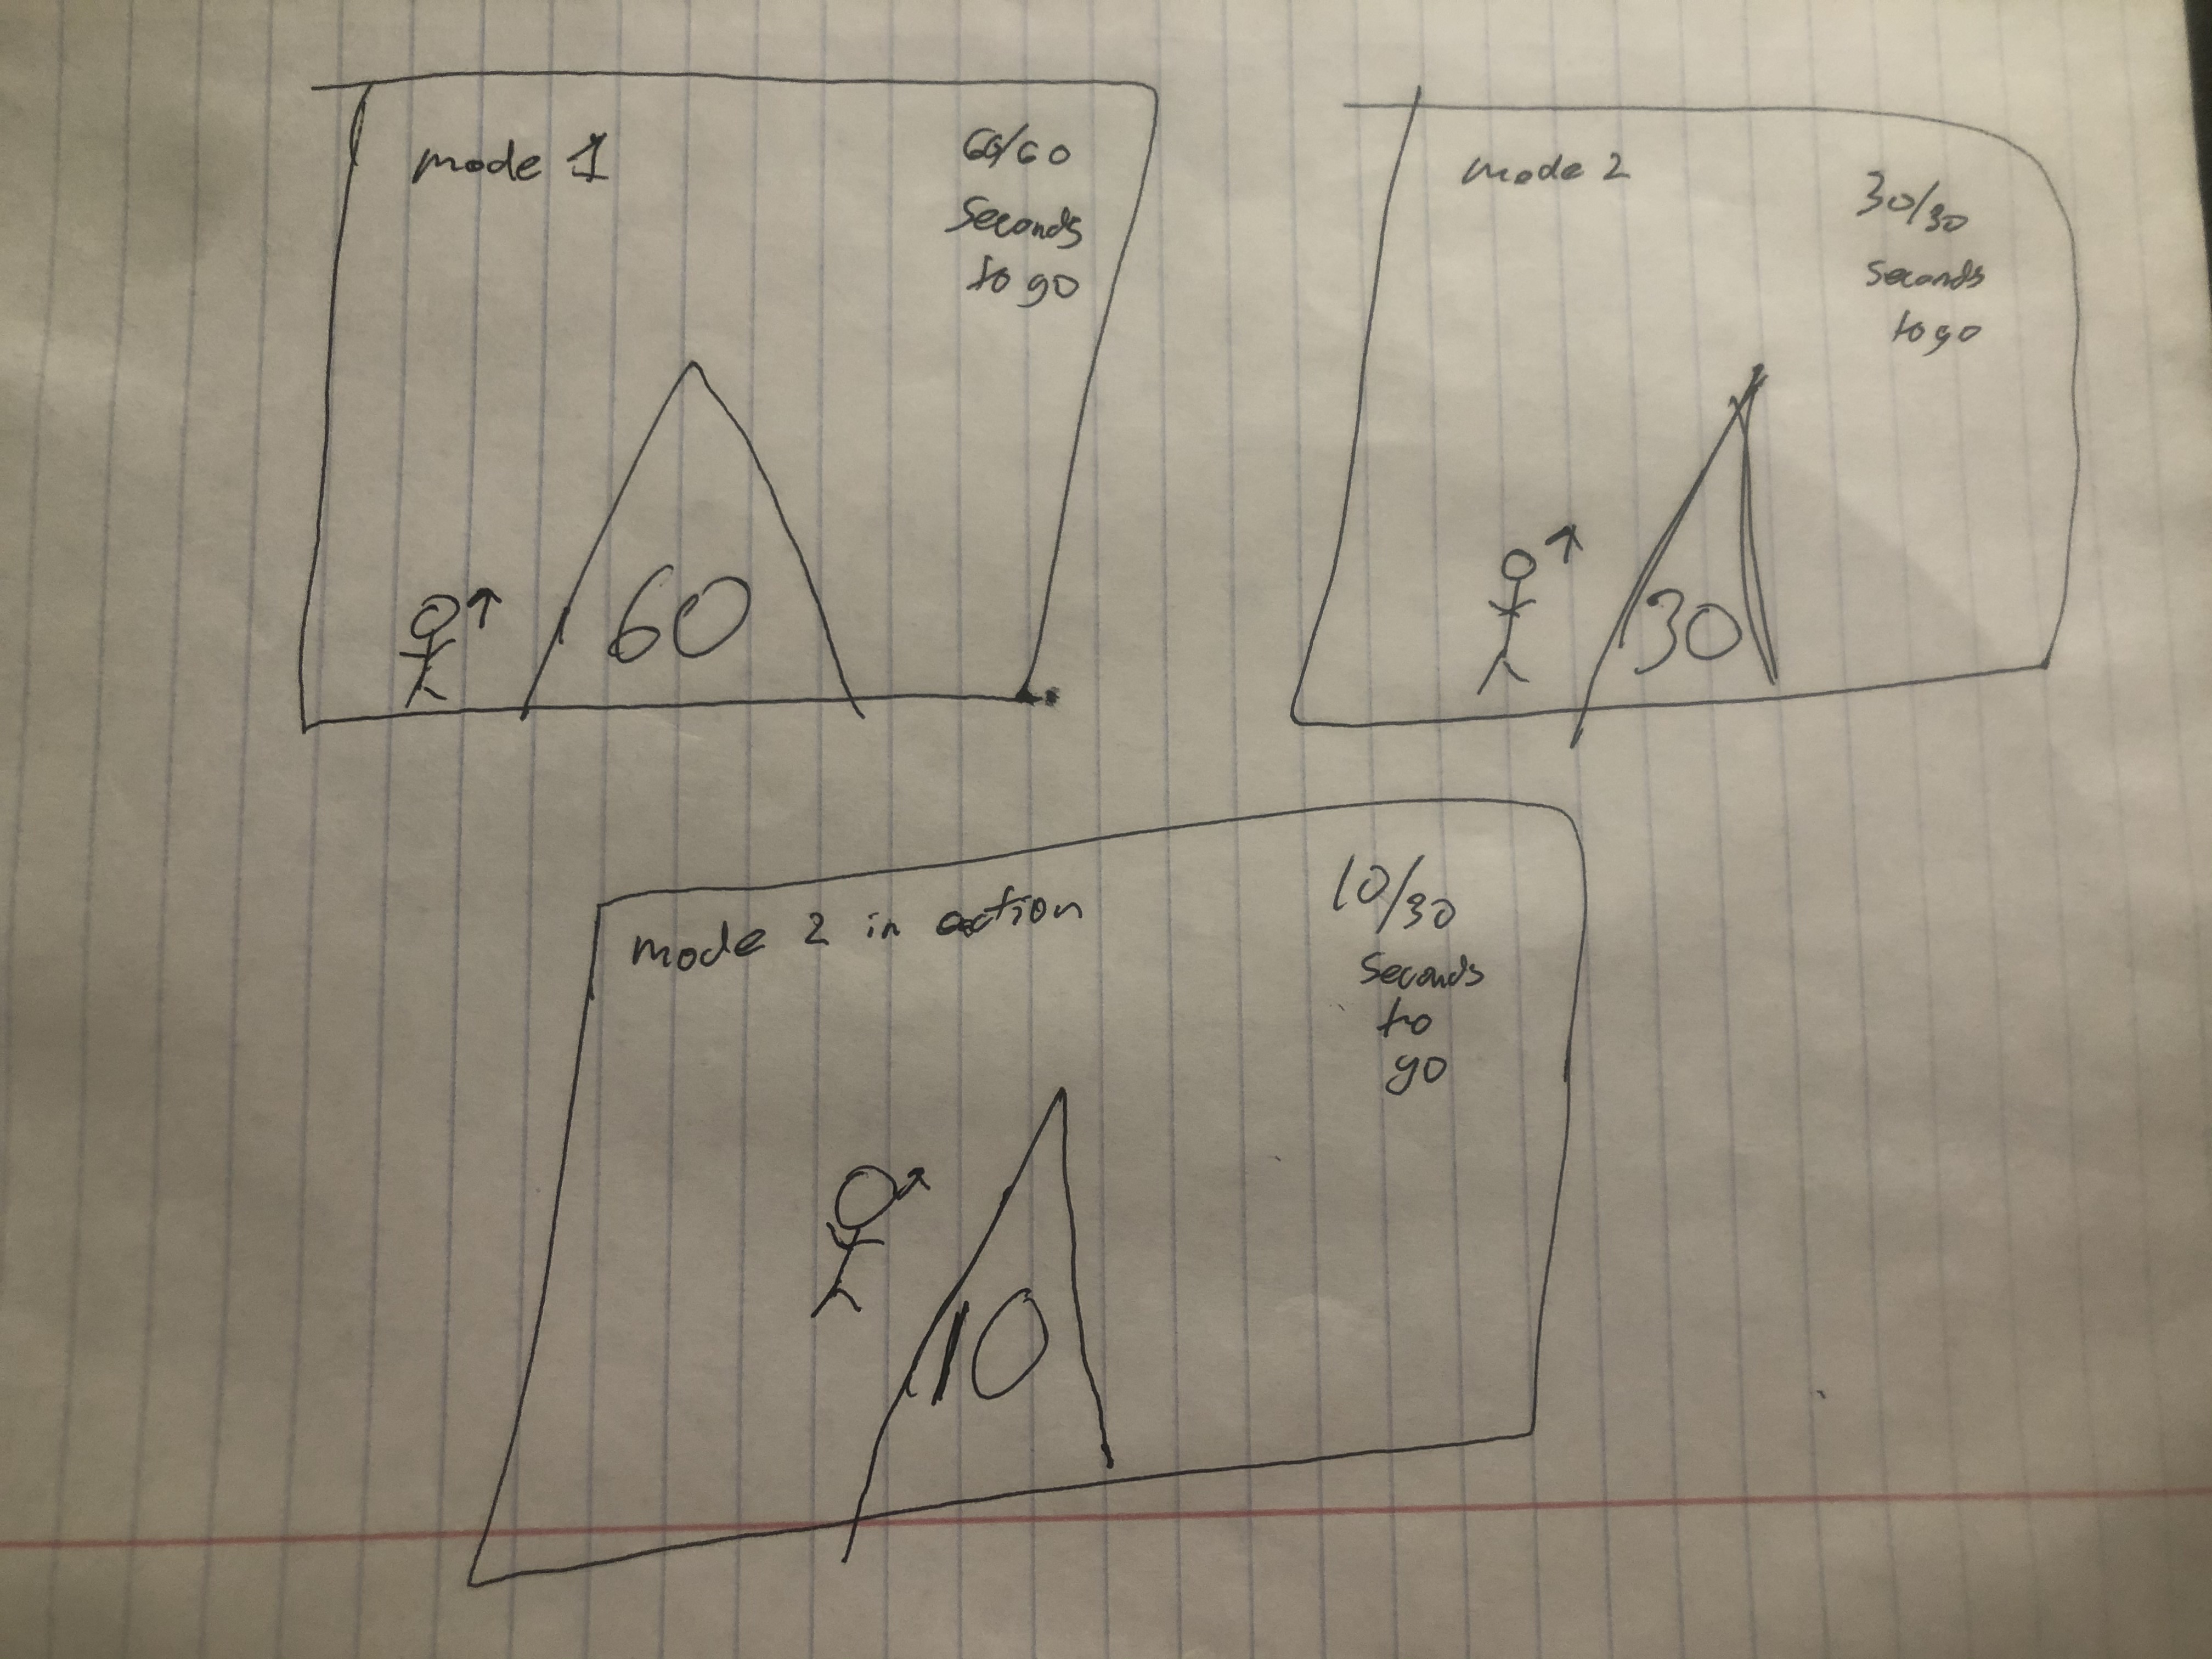 mode 1
60/60
seconds
to go
60
mode 2
30/30
seconds
to go
30
mode 2 in action
10/30
seconds
to
go
10